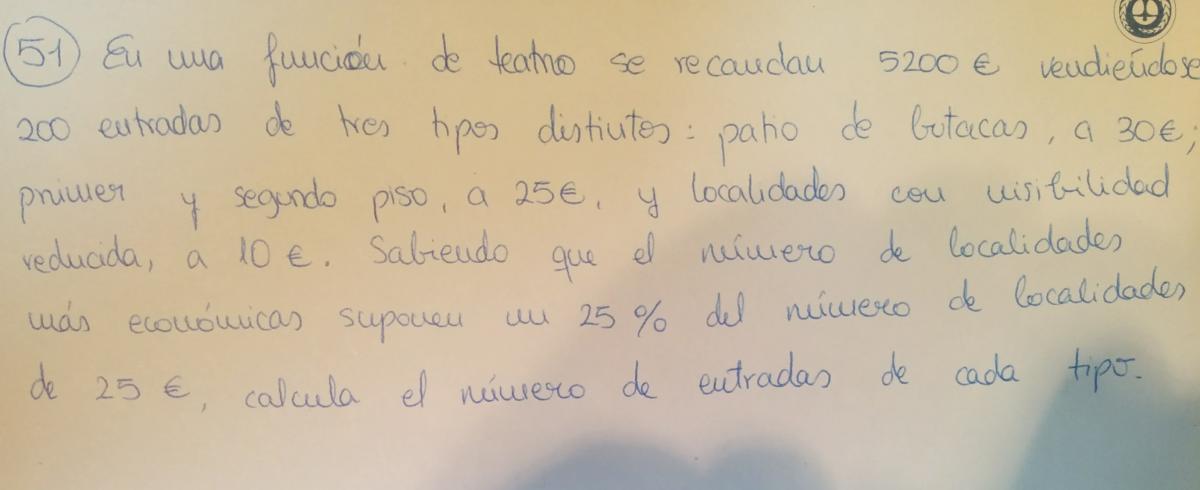 51 En una función de teatro se recaudan 5200 € vendiéndose
200 entradas de tres tipos distintos: patio de butacas, a 30€;
primer y segundo piso, a 25€, y localidades con visibilidad
reducida, a 10 €. Sabiendo que el número de localidades
más económicas suponen un 25 % del número de localidades
de 25 €, calcula el número de entradas de cada tipo.